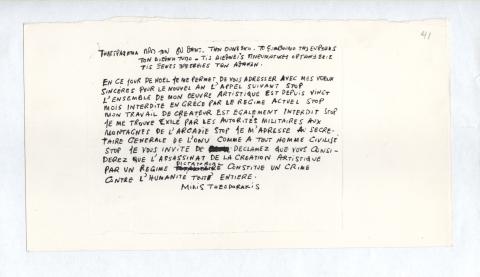 ΤΗΛΕΓΡΑΦΗΜΑ ΠΡΟΣ ΤΟΝ ΟΥ ΘΑΝΤ. ΤΗΝ ΟΥΝΕΣΚΟ. ΤΟ ΣΥΜΒΟΥΛΙΟ ΤΗΣ ΕΥΡΩΠΗΣ 41
ΤΟΝ ΔΙΕΘΝΗ ΤΥΠΟ - ΤΙΣ ΔΙΕΘΝΕΙΣ ΠΝΕΥΜΑΤΙΚΕΣ ΟΡΓΑΝΩΣΕΙΣ
ΤΙΣ ΞΕΝΕΣ ΠΡΕΣΒΕΙΕΣ ΤΩΝ ΑΘΗΝΩΝ.
EN CE JOUR DE NOEL JE ME PERMET DE VOUS ADRESSER AVEC MES VOEUX
SINCERES POUR LE NOUVEL AN L'APPEL SUIVANT STOP
L'ENSEMBLE DE MON OEUVRE ARTISTIQUE EST DEPUIS VINGT
MOIS INTERDITE EN GRECE PAR LE REGIME ACTUEL STOP
MON TRAVAIL DE CREATEUR EST EGALEMENT INTERDIT STOP
JE ME TROUVE EXILE PAR LES AUTORITES MILITAIRES AUX
MONTAGNES DE L'ARCADIE STOP JE M'ADRESSE AU SECRE-
TAIRE GENERALE DE L'ONU COMME A TOUT HOMME CIVILISE
STOP JE VOUS INVITE DE DECLAREZ QUE VOUS CONSI-
DEREZ QUE L'ASSASSINAT DE LA CREATION ARTISTIQUE
PAR UN REGIME DICTATORIAL CONSTITUE UN CRIME
CONTRE L'HUMANITE TOUTE ENTIERE.
MIKIS THEODORAKIS